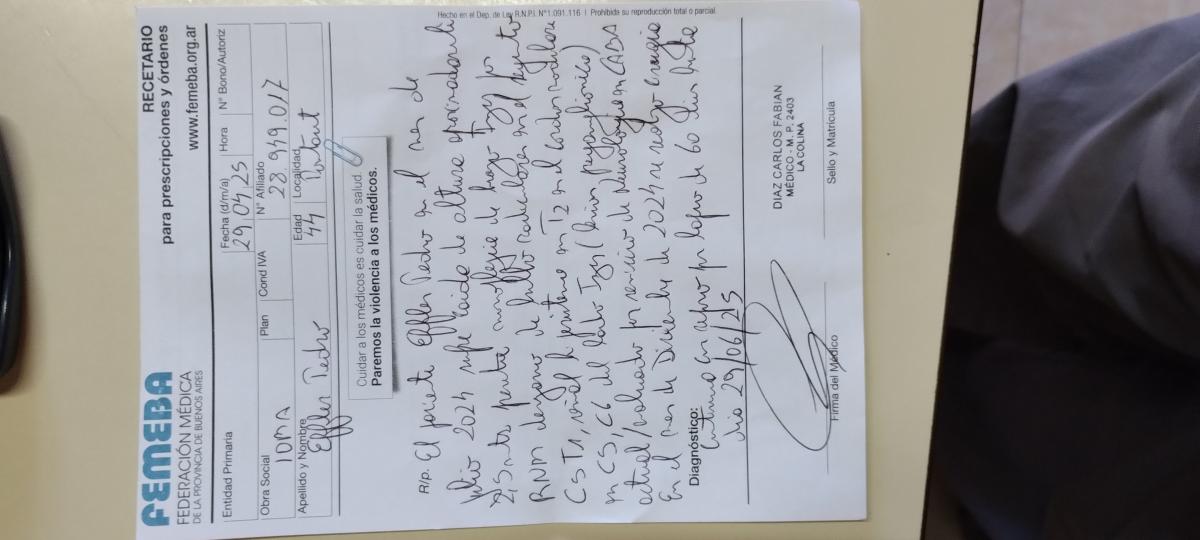 FEMEBA
FEDERACIÓN MÉDICA
DE LA PROVINCIA DE BUENOS AIRES
RECETARIO
para prescripciones y órdenes
www.femeba.org.ar
Entidad Primaria
Fecha (d/m/a) Hora N° Bono/Autoriz
29/04/25
Obra Social Plan Cond IVA N° Afiliado
IOMA 28.949.017
Apellido y Nombre Edad Localidad
Effler Pedro 44
Cuidar a los médicos es cuidar la salud.
Paremos la violencia a los médicos.
R/p. El paciente Effler Pedro en el mes de
Julio 2024 sufre caida de altura aproximadamente
2,5 mts presenta monoplejia de Izq por
RNM desgarro de radiculares en el
C5 T1, señal en T2 en el cordon medular
en C5, C6 del lado Izq (
actual/evaluado por servicio de Neurologia en CABA
En el mes de Diciembre de 2024 se realizo cirugia
Diagnóstico:
Continua en reposo por lapso de 60 dias hasta
dia 29/06/25
Firma del Médico
DIAZ CARLOS FABIAN
MÉDICO - M. P. 2403
LA COLINA
Sello y Matrícula
Hecho en el Dep. de Ley R.N.P.I. N°1.091.116 | Prohibida su reproducción total o parcial.